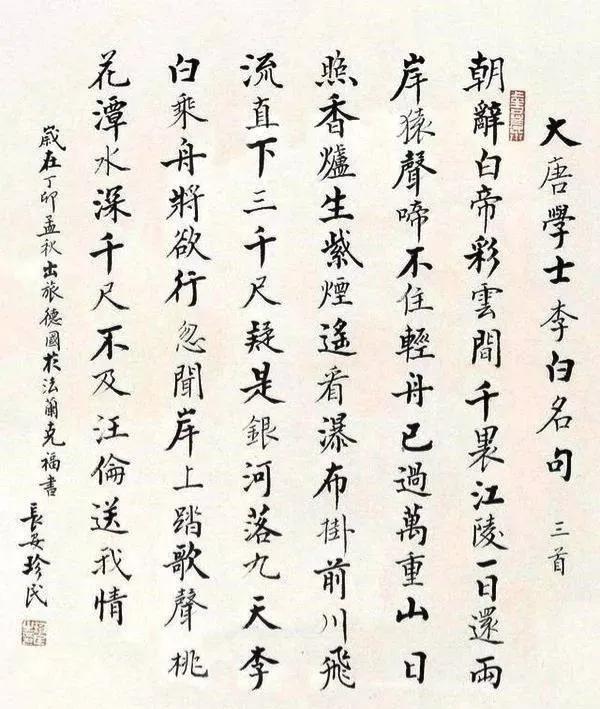 大唐學士李白名句 三首
朝辭白帝彩雲間千里江陵一日還兩
岸猿聲啼不住輕舟已過萬重山日
照香爐生紫煙遙看瀑布掛前川飛
流直下三千尺疑是銀河落九天李
白乘舟將欲行忽聞岸上踏歌聲桃
花潭水深千尺不及汪倫送我情
歲在丁卯孟秋出旅德國於法蘭克福書
長安珍民